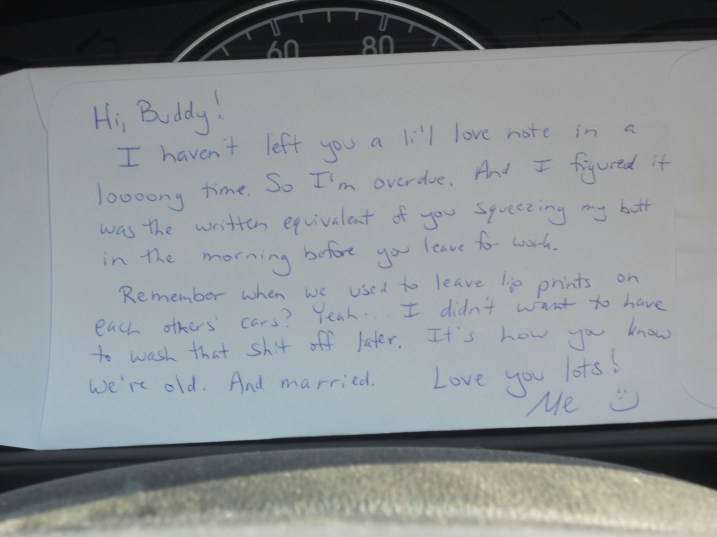 60 80
Hi, Buddy!
I haven't left you a li'l love note in a
loooong time. So I'm overdue. And I figured it
was the written equivalent of you squeezing my butt
in the morning before you leave for work.
Remember when we used to leave lip prints on
each others' cars? Yeah... I didn't want to have
to wash that shit off later. It's how you know
we're old. And married. Love you lots!
Me :)